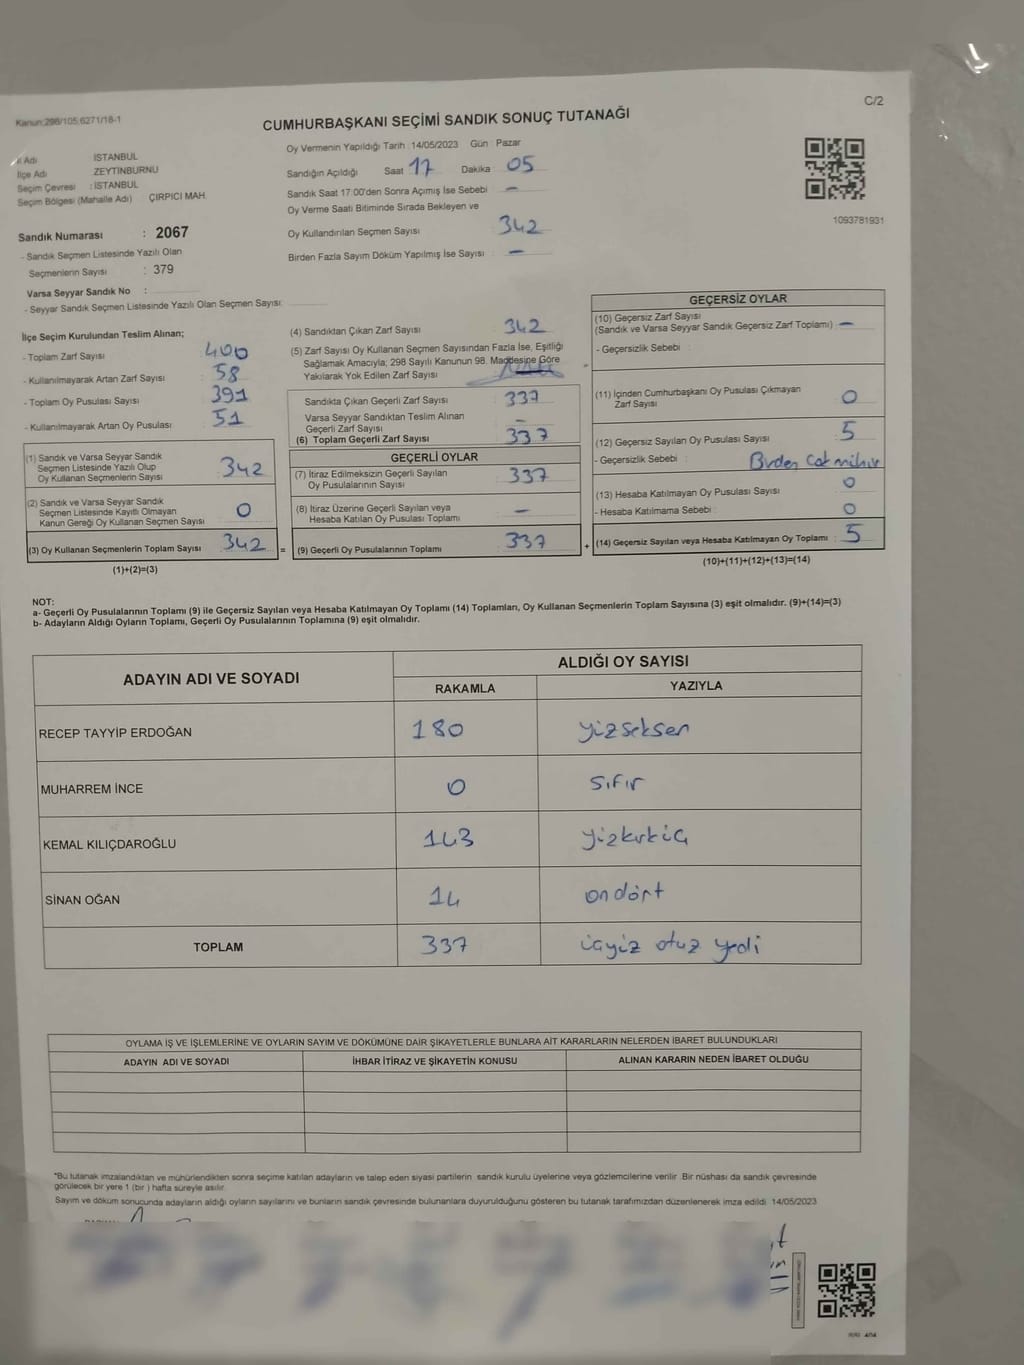 Kanun;298/105;6271/18-1
C/2
CUMHURBAŞKANI SEÇİMİ SANDIK SONUÇ TUTANAĞI
İl Adı İSTANBUL
İlçe Adı ZEYTİNBURNU
Seçim Çevresi : İSTANBUL
Seçim Bölgesi (Mahalle Adı) ÇIRPICI MAH.
Sandık Numarası : 2067
- Sandık Seçmen Listesinde Yazılı Olan
Seçmenlerin Sayısı : 379
Varsa Seyyar Sandık No :
- Seyyar Sandık Seçmen Listesinde Yazılı Olan Seçmen Sayısı:
Oy Vermenin Yapıldığı Tarih : 14/05/2023 Gün : Pazar
Sandığın Açıldığı Saat 17 Dakika 05
Sandık Saat 17:00'den Sonra Açımış İse Sebebi : -
Oy Verme Saati Bitiminde Sırada Bekleyen ve
Oy Kullandırılan Seçmen Sayısı 342
Birden Fazla Sayım Döküm Yapılmış İse Sayısı : -
1093781931
İlçe Seçim Kurulundan Teslim Alınan;
- Toplam Zarf Sayısı : 400
- Kullanılmayarak Artan Zarf Sayısı : 58
- Toplam Oy Pusulası Sayısı : 391
- Kullanılmayarak Artan Oy Pusulası : 51
(1) Sandık ve Varsa Seyyar Sandık
Seçmen Listesinde Yazılı Olup
Oy Kullanan Seçmenlerin Sayısı : 342
(2) Sandık ve Varsa Seyyar Sandık
Seçmen Listesinde Kayıtlı Olmayan
Kanun Gereği Oy Kullanan Seçmen Sayısı : 0
(3) Oy Kullanan Seçmenlerin Toplam Sayısı : 342 =
(1)+(2)=(3)
(4) Sandıktan Çıkan Zarf Sayısı : 342
(5) Zarf Sayısı Oy Kullanan Seçmen Sayısından Fazla İse, Eşitliği
Sağlamak Amacıyla; 298 Sayılı Kanunun 98. Maddesine Göre
Yakılarak Yok Edilen Zarf Sayısı
Sandıkta Çıkan Geçerli Zarf Sayısı : 337
Varsa Seyyar Sandıktan Teslim Alınan
Geçerli Zarf Sayısı : -
(6) Toplam Geçerli Zarf Sayısı : 337
GEÇERLİ OYLAR
(7) İtiraz Edilmeksizin Geçerli Sayılan
Oy Pusulalarının Sayısı : 337
(8) İtiraz Üzerine Geçerli Sayılan veya
Hesaba Katılan Oy Pusulası Toplamı : -
(9) Geçerli Oy Pusulalarının Toplamı : 337 +
GEÇERSİZ OYLAR
(10) Geçersiz Zarf Sayısı
(Sandık ve Varsa Seyyar Sandık Geçersiz Zarf Toplamı) : -
- Geçersizlik Sebebi :
(11) İçinden Cumhurbaşkanı Oy Pusulası Çıkmayan
Zarf Sayısı : 0
(12) Geçersiz Sayılan Oy Pusulası Sayısı : 5
- Geçersizlik Sebebi : Birden Çok mühür
(13) Hesaba Katılmayan Oy Pusulası Sayısı : 0
- Hesaba Katılmama Sebebi : 0
(14) Geçersiz Sayılan veya Hesaba Katılmayan Oy Toplamı : 5
(10)+(11)+(12)+(13)=(14)
NOT:
a- Geçerli Oy Pusulalarının Toplamı (9) ile Geçersiz Sayılan veya Hesaba Katılmayan Oy Toplamı (14) Toplamları, Oy Kullanan Seçmenlerin Toplam Sayısına (3) eşit olmalıdır. (9)+(14)=(3)
b- Adayların Aldığı Oyların Toplamı, Geçerli Oy Pusulalarının Toplamına (9) eşit olmalıdır.
ADAYIN ADI VE SOYADI ALDIĞI OY SAYISI
RAKAMLA YAZIYLA
RECEP TAYYİP ERDOĞAN 180 yüzseksen
MUHARREM İNCE 0 sıfır
KEMAL KILIÇDAROĞLU 143 yüzkırküç
SİNAN OĞAN 14 ondört
TOPLAM 337 üçyüz otuz yedi
OYLAMA İŞ VE İŞLEMLERİNE VE OYLARIN SAYIM VE DÖKÜMÜNE DAİR ŞİKAYETLERLE BUNLARA AİT KARARLARIN NELERDEN İBARET BULUNDUKLARI
ADAYIN ADI VE SOYADI İHBAR İTİRAZ VE ŞİKAYETİN KONUSU ALINAN KARARIN NEDEN İBARET OLDUĞU
*Bu tutanak imzalandıktan ve mühürlendikten sonra seçime katılan adayların ve talep eden siyasi partilerin sandık kurulu üyelerine veya gözlemcilerine verilir. Bir nüshası da sandık çevresinde
görülecek bir yere 1 (bir ) hafta süreyle asılır.
Sayım ve döküm sonucunda adayların aldığı oyların sayılarını ve bunların sandık çevresinde bulunanlara duyurulduğunu gösteren bu tutanak tarafımızdan düzenlenerek imza edildi. 14/05/2023